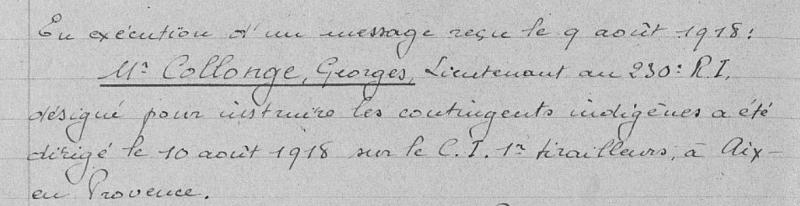 En exécution d'un message reçu le 9 août 1918:
Mr Collonge, Georges, Lieutenant au 230e R.I.
désigné pour instruire les contingents indigènes a été
dirigé le 10 août 1918 sur le C.I. 1er tirailleurs, à Aix-
en Provence.